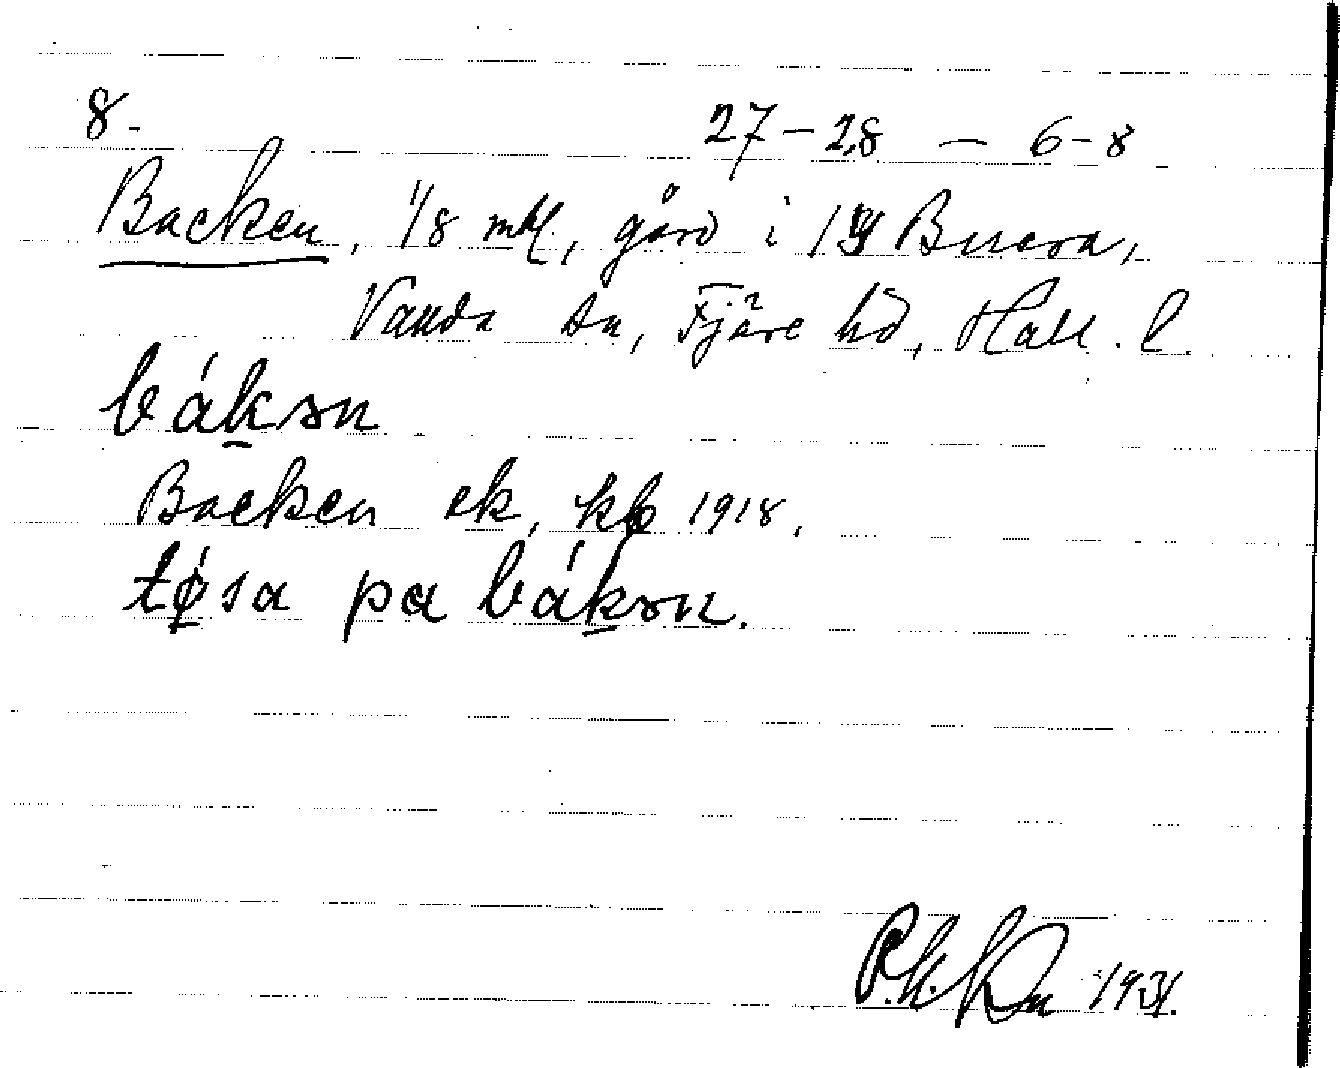 8. 27-28 - 6-8
Backen, 1/8 mtl, gård i Buera,
Vanda sn, Fjäre hd, Hall. l.
bákən
Backen ek, kb 1918.
tø̱sa pa bákən.
1931.